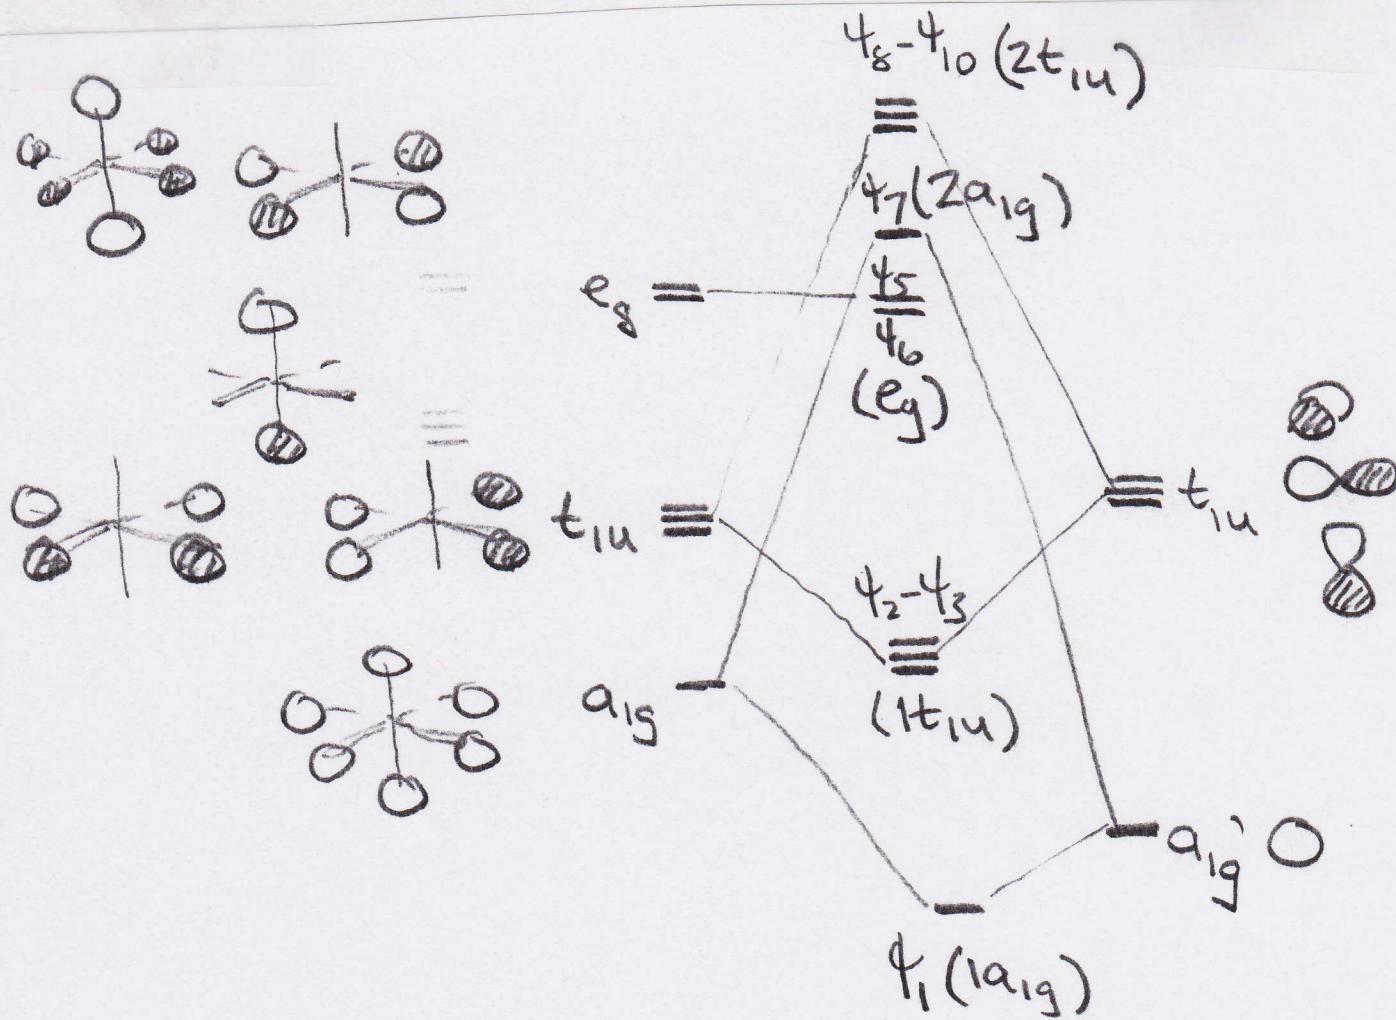 ψ₈-ψ₁₀ (2t₁ᵤ)
ψ₇ (2a₁g)
eg
ψ₅
ψ₆
(eg)
t₁ᵤ
t₁ᵤ
ψ₂-ψ₃
(1t₁ᵤ)
a₁g
a₁g
ψ₁ (1a₁g)